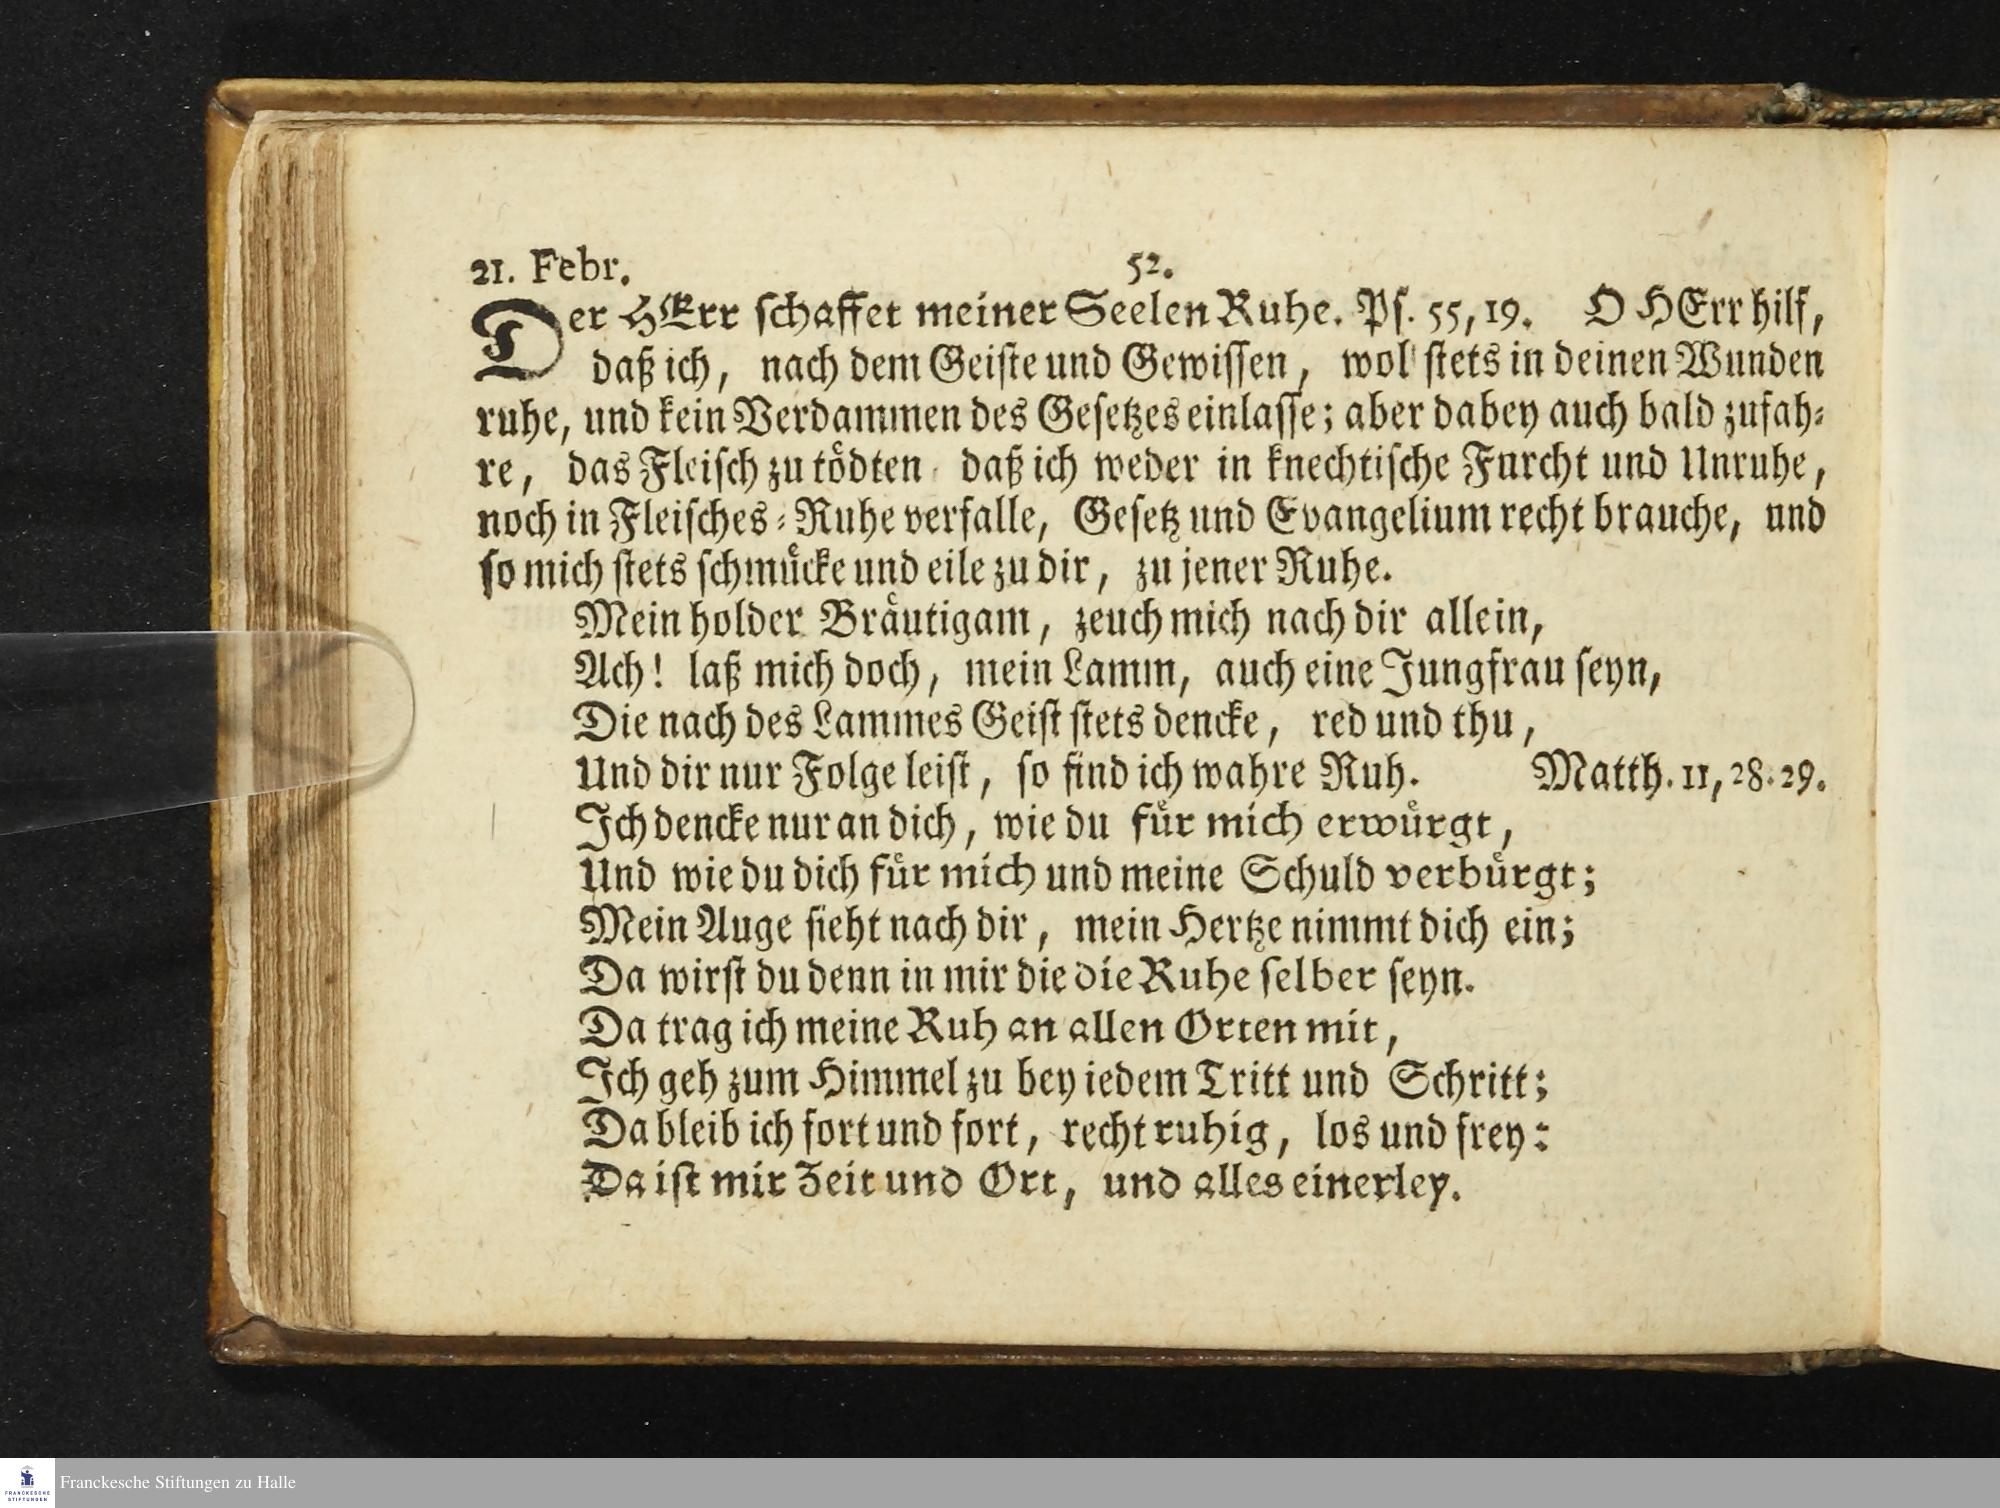 21. Febr.
52.
Der HErr schaffet meiner Seelen Ruhe. Ps. 55, 19. O HErr hilf,
daß ich, nach dem Geiste und Gewissen, wol stets in deinen Wunden
ruhe, und kein Verdammen des Gesetzes einlasse; aber dabey auch bald zufah-
re, das Fleisch zu tödten, daß ich weder in knechtische Furcht und Unruhe,
noch in Fleisches-Ruhe verfalle, Gesetz und Evangelium recht brauche, und
so mich stets schmücke und eile zu dir, zu jener Ruhe.
Mein holder Bräutigam, zeuch mich nach dir allein,
Ach! laß mich doch, mein Lamm, auch eine Jungfrau seyn,
Die nach des Lammes Geist stets dencke, red und thu,
Und dir nur Folge leist, so find ich wahre Ruh. Matth. 11, 28. 29.
Ich dencke nur an dich, wie du für mich erwürgt,
Und wie du dich für mich und meine Schuld verbürgt;
Mein Auge sieht nach dir, mein Hertze nimmt dich ein;
Da wirst du denn in mir die die Ruhe selber seyn.
Da trag ich meine Ruh an allen Orten mit,
Ich geh zum Himmel zu bey iedem Tritt und Schritt;
Da bleib ich fort und fort, recht ruhig, los und frey:
Da ist mir Zeit und Ort, und alles einerley.
FRANCKESCHE
STIFTUNGEN
Franckesche Stiftungen zu Halle